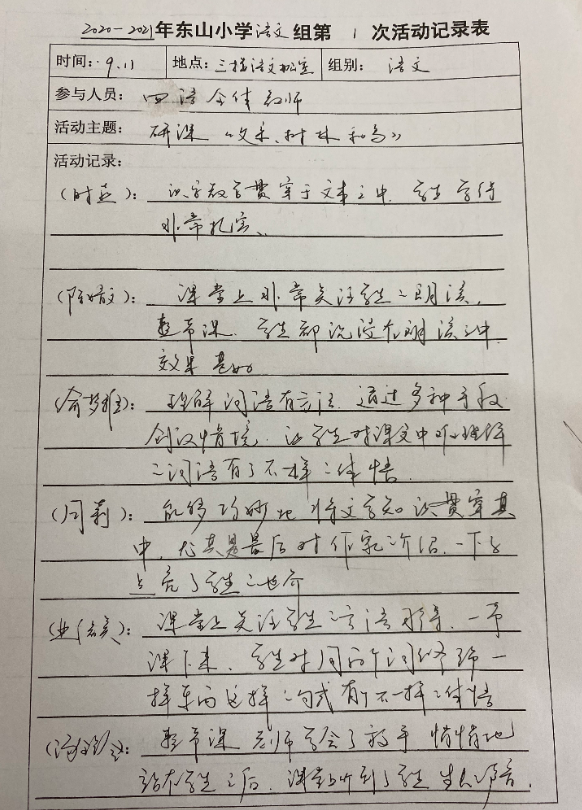 2020-2021年东山小学语文组第1次活动记录表
时间：9.11 地点：三楼语文办公室 组别：语文
参与人员：四语全体教师
活动主题：研课《父亲、树林和鸟》
活动记录：
识字教学贯穿于文本之中，学生学得
非常扎实。
课堂上非常关注学生之朗读，
整节课，学生都沉浸在朗读之中
效果甚好
理解词语有方法，通过多种手段
创设情境，让学生对课文中难理解
之词语有了不一样之体悟。
(闫莉)：能够巧妙地将文学知识贯穿其
中，尤其是最后对作家介绍，一下子
点亮了学生之
课堂上关注学生之言语习得，一节
课下来，学生对
样之句式有了不一样之体悟
整节课老师学会了放手，悄悄地
站在学生之后，课堂上听到了学生生长声音。